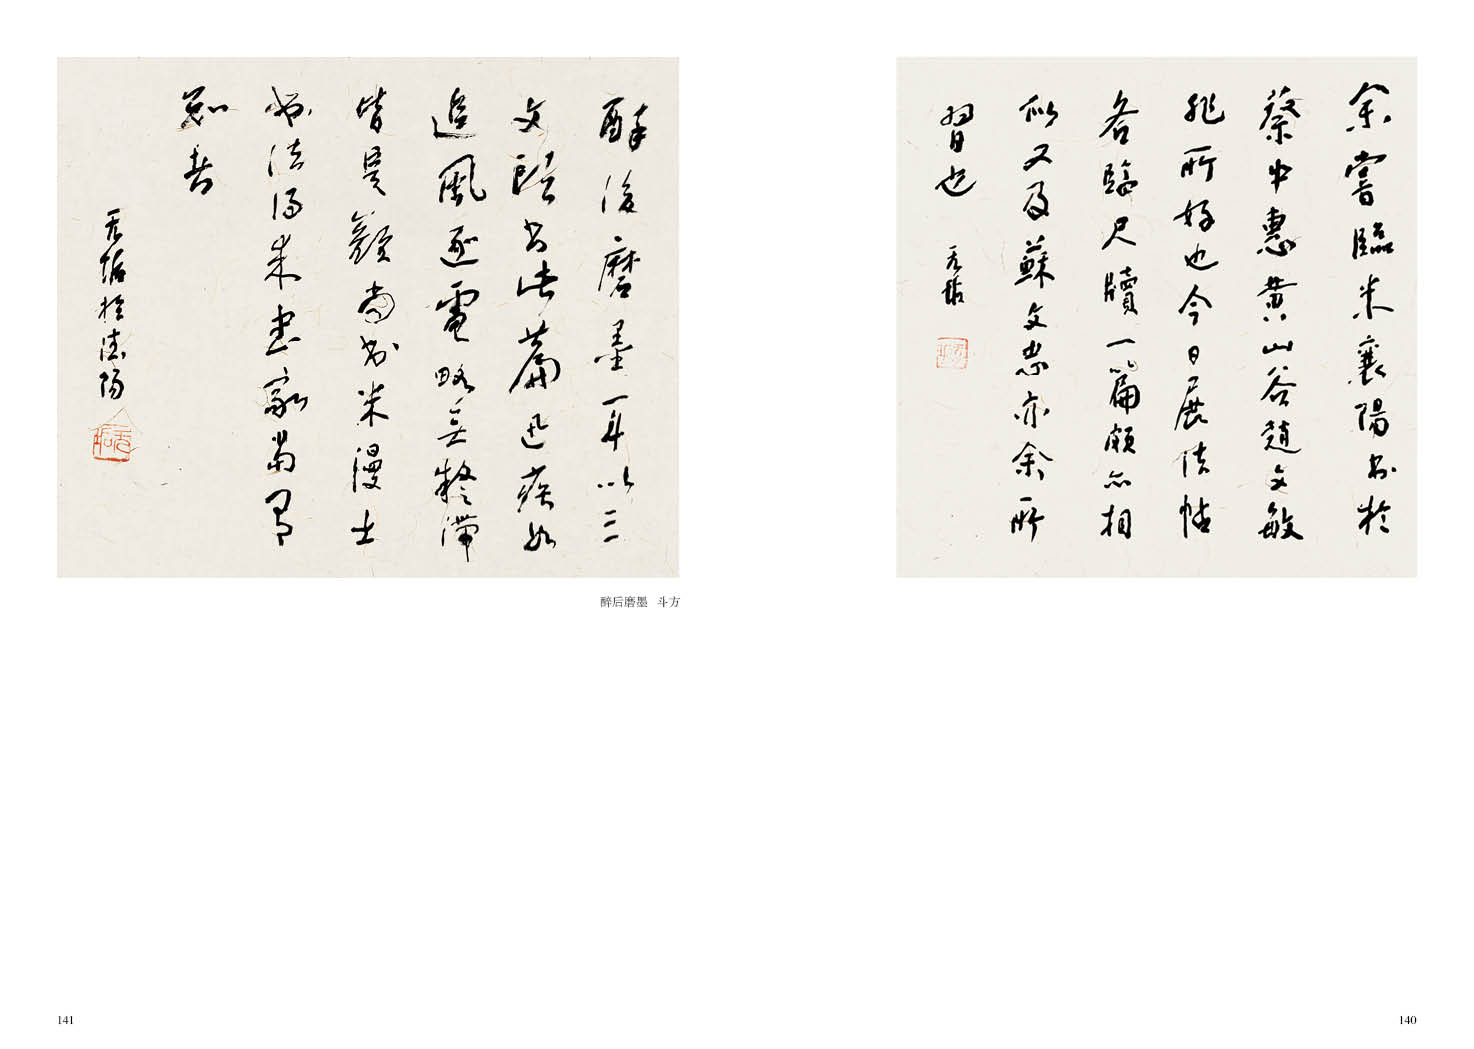 余嘗臨米襄陽書於
蔡中惠黄山谷趙文敏
非所好也今日展法帖
各臨尺牘一篇頗亦相
似又及蘇文忠亦余所
習也
无垢
140
醉後磨墨一以三
文書此篇迅疾如
追風逐電略無凝滯
皆是顏尚書米漫士
書法得來書家當有
知者
无垢於德陽
醉后磨墨 斗方
141